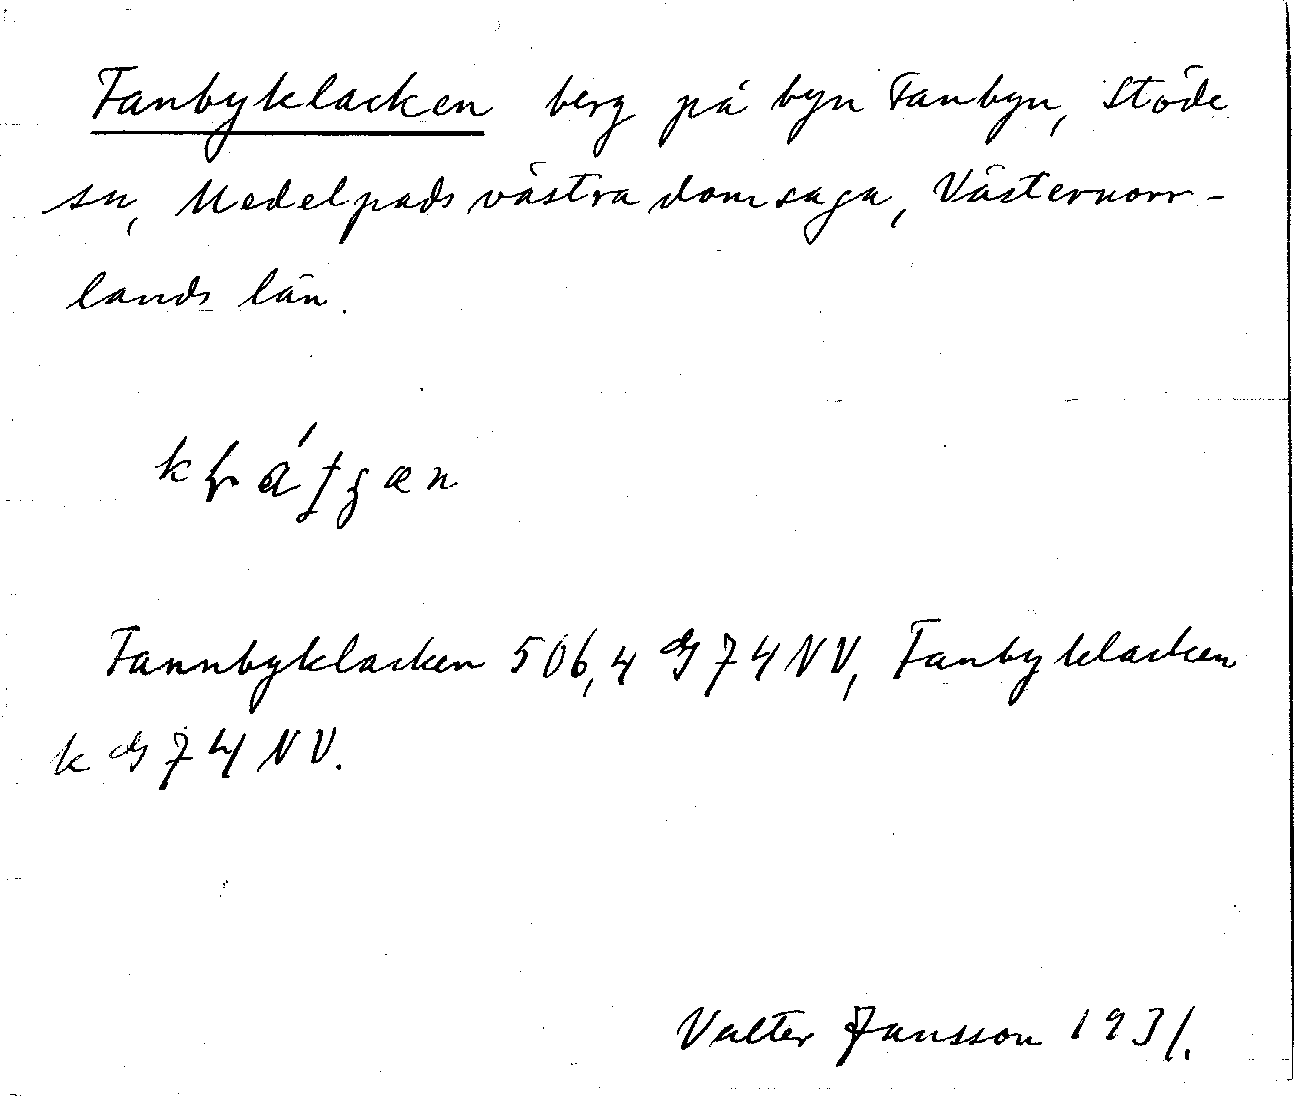 Fanbyklacken berg på byn Fanbyn, Stöde
sn, Medelpads västra domsaga, Västernorr-
lands län.
Fannbyklacken 506,4 GS 74 NV, Fanbyklacken
k GS 74 NV.
Valter Jansson 1931.